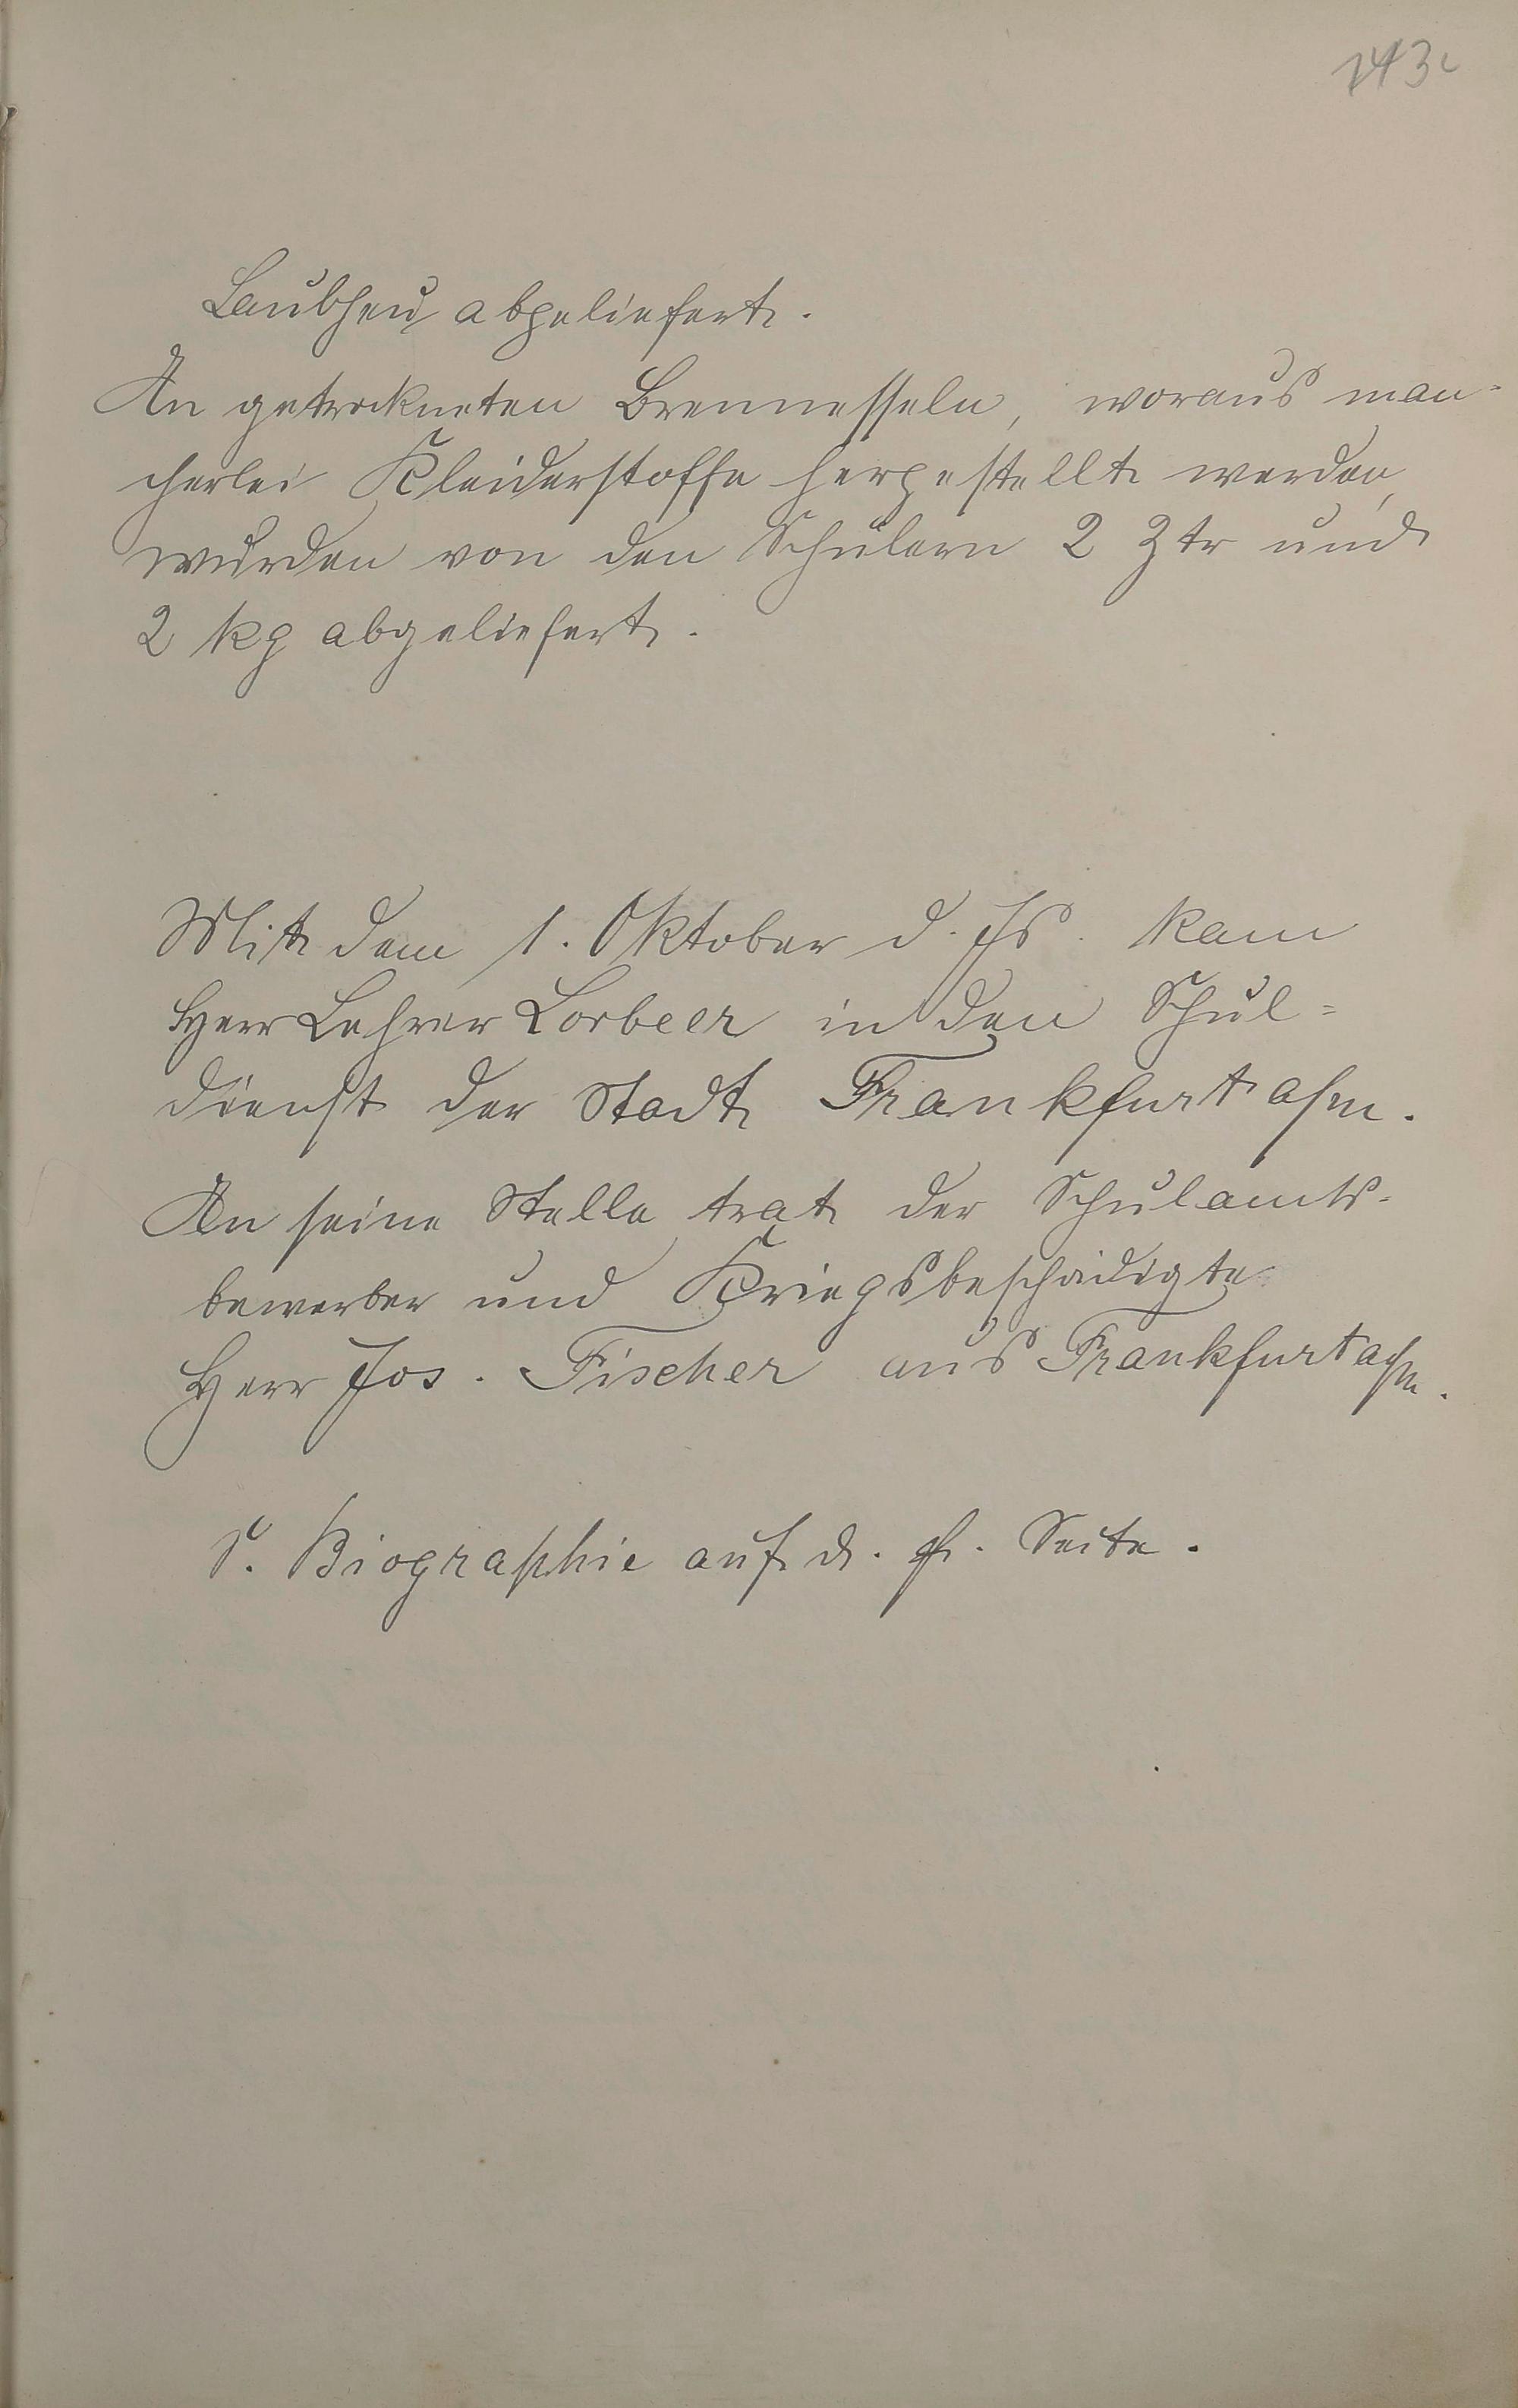 143c
Laubheu abgeliefert.
An getrockneten Brennesseln, woraus man-
cherlei Kleiderstoffe hergestellt werden,
wurden von den Schülern 2 Ztr und
2 kg abgeliefert.
Mit dem 1. Oktober d. Js. kam
Herr Lehrer Lorbeer in den Schul=
dienst der Stadt Frankfurt a/m.
An seine Stelle trat der Schulamts-
bewerber und Kriegsbeschädigte
Herr Jos. Fischer aus Frankfurt a/m.
S. Biographie auf d. f. Seite.